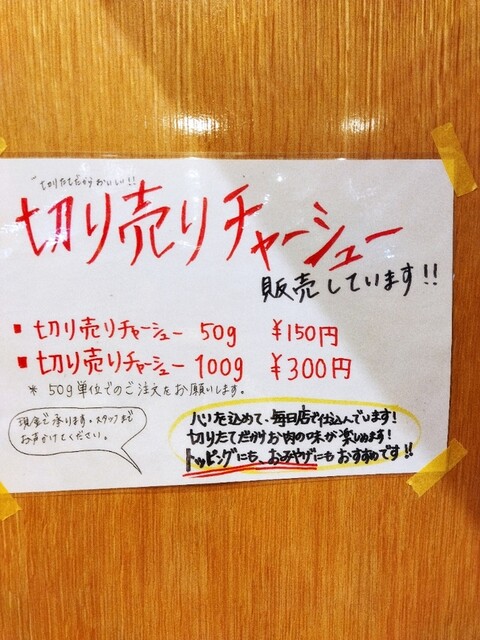 切りたてだからおいしい!!
切り売りチャーシュー
販売しています!!
■ 切り売りチャーシュー 50g ¥150円
■ 切り売りチャーシュー 100g ¥300円
* 50g単位でのご注文をお願いします。
現金で承ります。スタッフまで
お声かけてください。
心を込めて、毎日店で仕込んでいます!
切りたてだからお肉の味が楽しめます!
トッピングにも、おみやげにもおすすめです!!